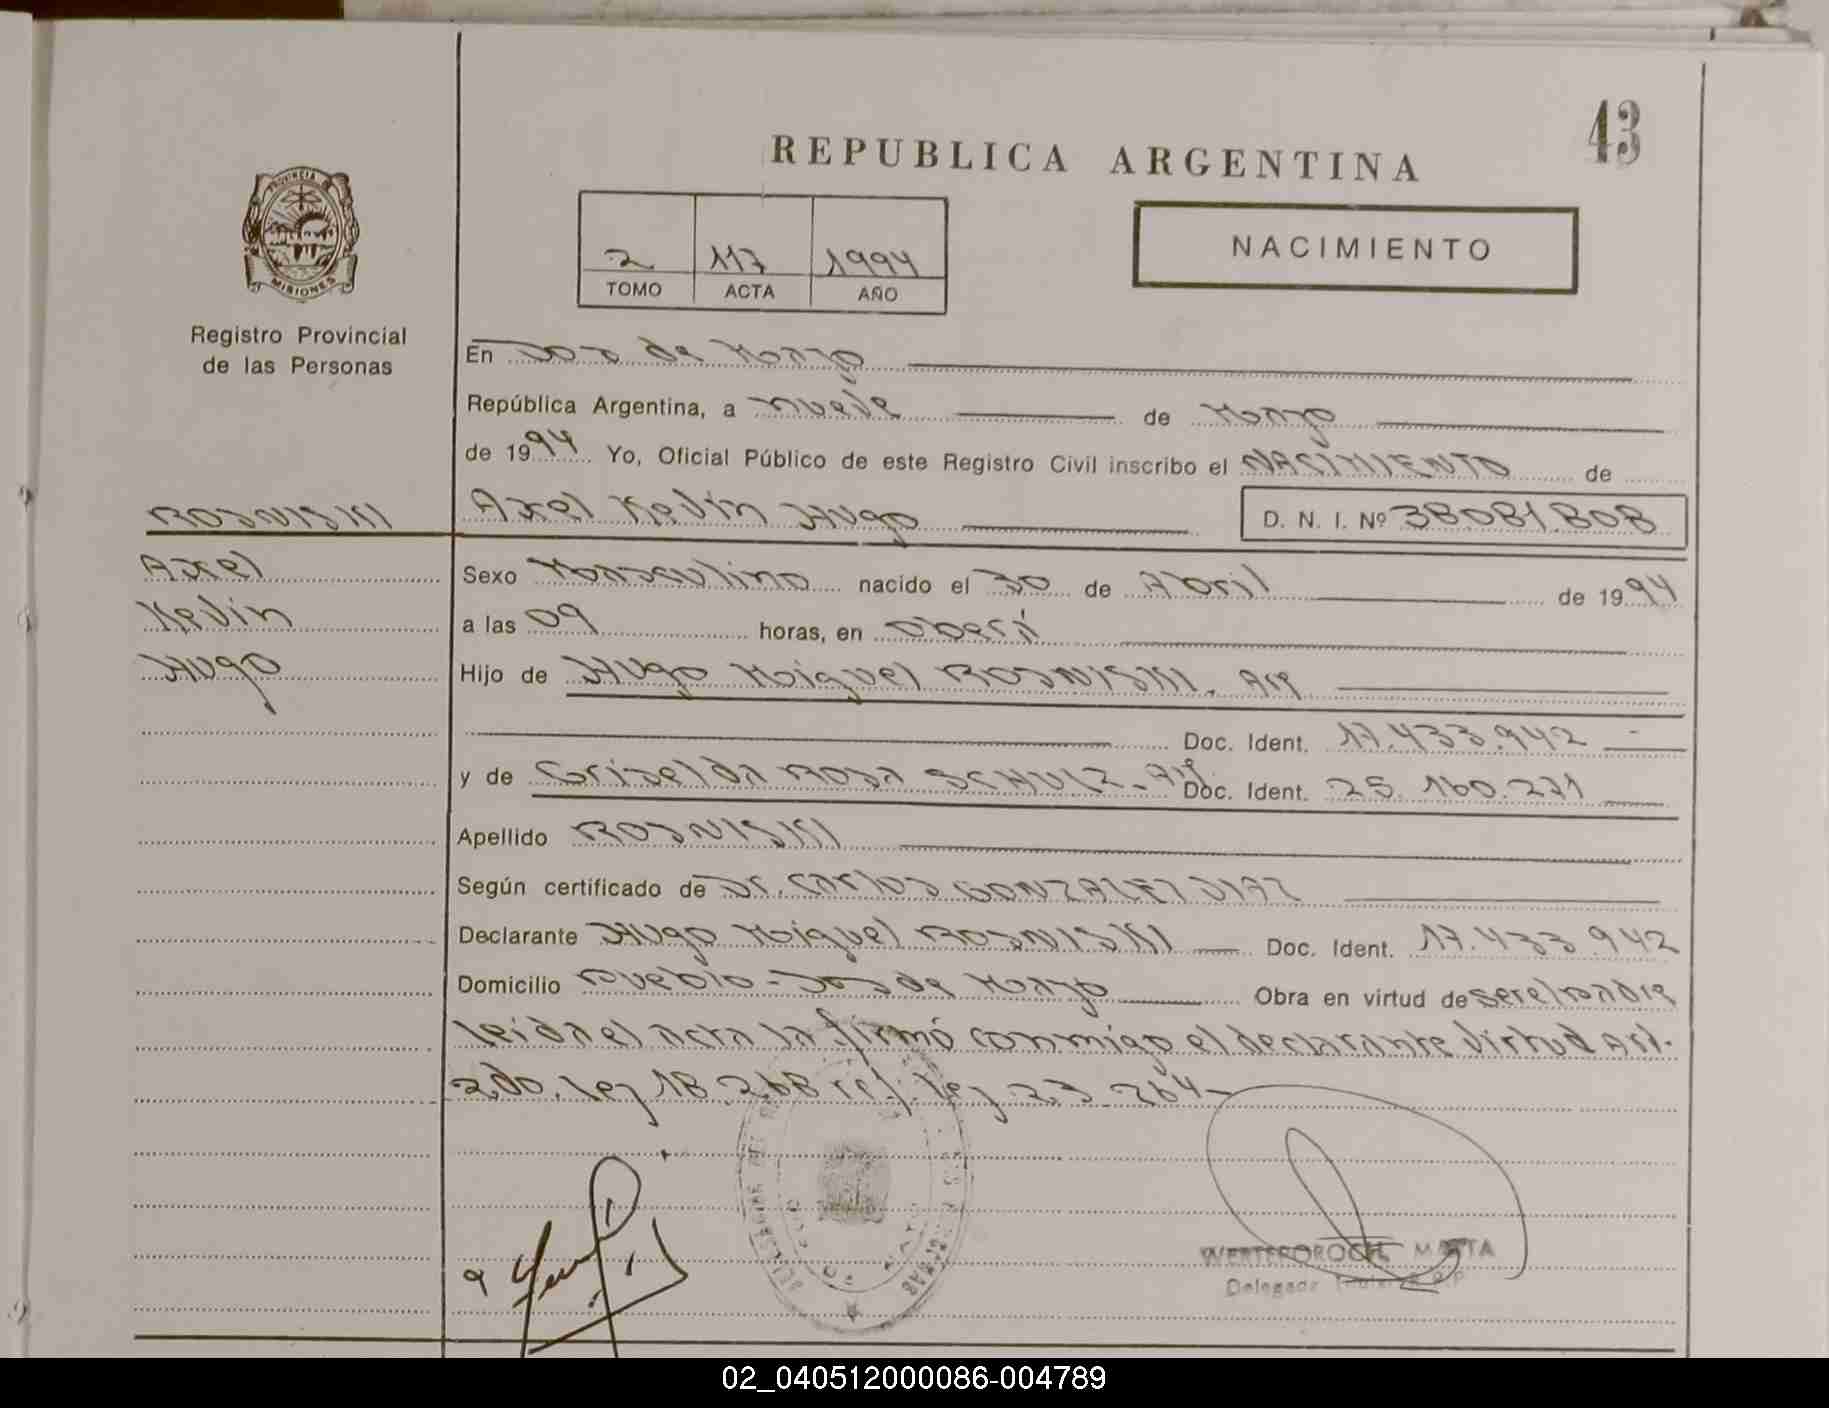 43
REPUBLICA ARGENTINA
PROVINCIA
MISIONES
Registro Provincial
de las Personas
2 117 1994
TOMO ACTA AÑO
NACIMIENTO
En Dos de Mayo
República Argentina, a nueve de Mayo
de 1994 Yo, Oficial Público de este Registro Civil inscribo el NACIMIENTO de
ROSNISKI Axel Kevin Hugo D. N. I. Nº 38081.808
Axel
Kevin
Hugo
Sexo Masculino nacido el 30 de Abril de 1994
a las 09 horas, en Oberá
Hijo de Hugo Miguel ROSNISKI. Arg
Doc. Ident. 17.433.942
y de Griselda Rosa SCHULZ - Arg. Doc. Ident. 25.160.271
Apellido ROSNISKI
Según certificado de Dr. Carlos GONZALEZ DIAZ
Declarante Hugo Miguel ROSNISKI Doc. Ident. 17.433.942
Domicilio Pueblo - Dos de Mayo Obra en virtud de ser el padre
leida el acta la firmó conmigo el declarante virtud Art.
2do. ley 18.268 ref. ley 23.264
MARTA
02_040512000086-004789